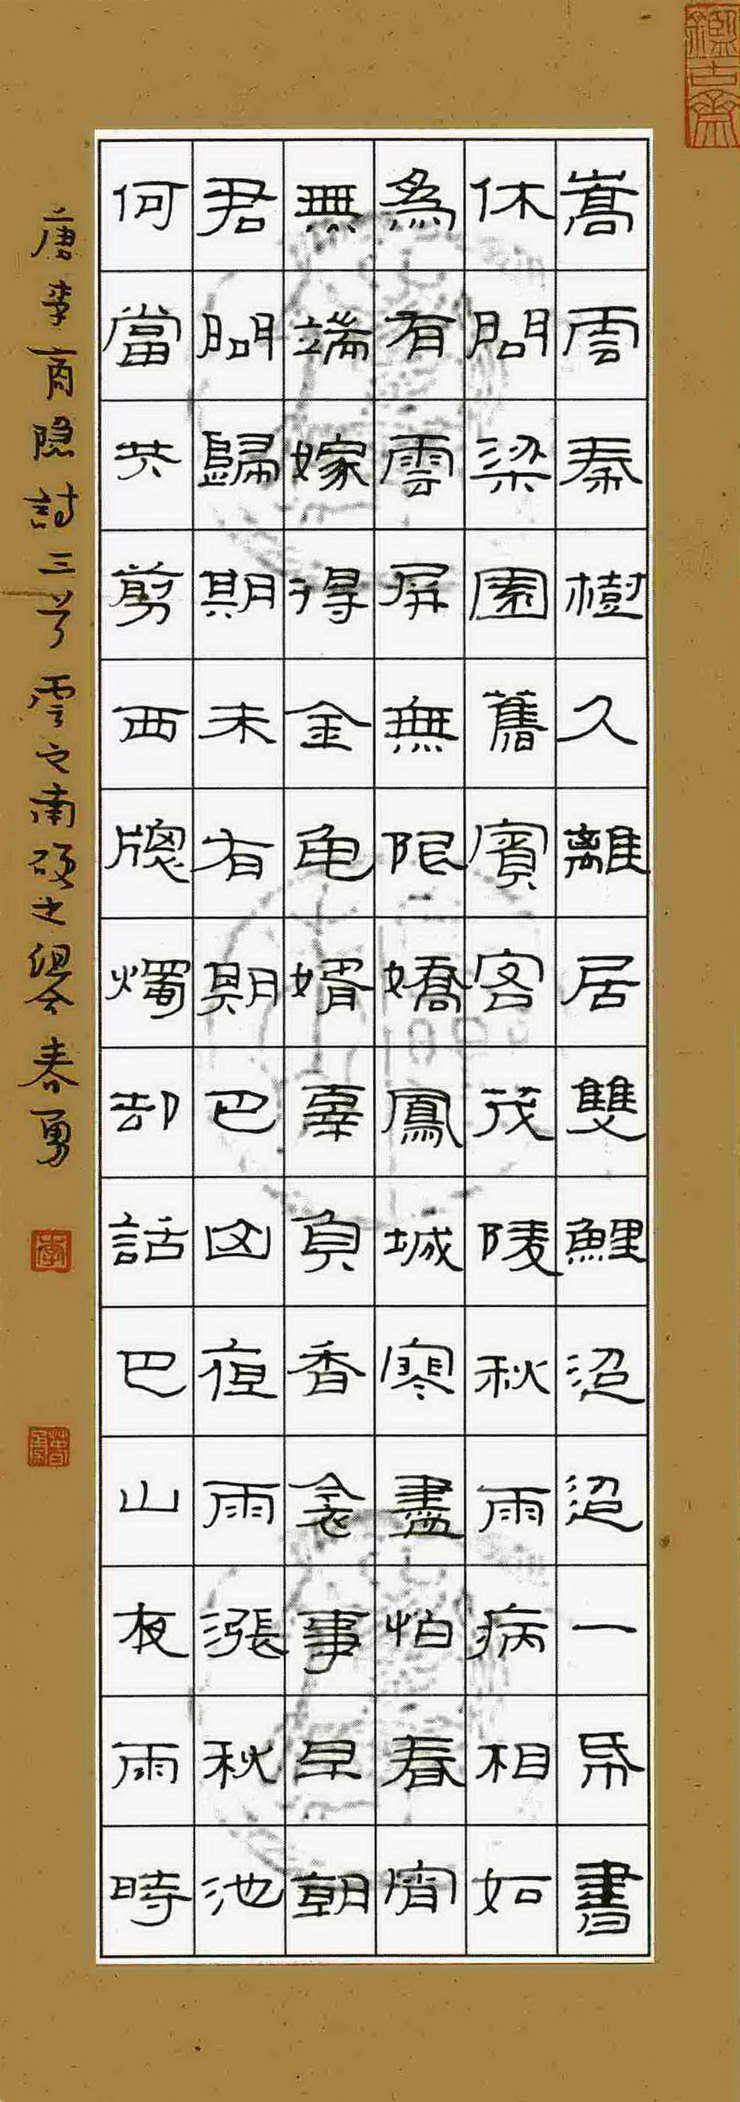 嵩雲秦樹久離居雙鯉迢迢一帋書
休問梁園舊賓客茂陵秋雨病相如
為有雲屏無限嬌鳳城寒盡怕春宵
無端嫁得金龜婿辜負香衾事早朝
君問歸期未有期巴山夜雨漲秋池
何當共剪西牕燭却話巴山夜雨時
唐李商隐詩三首雲之南春勇